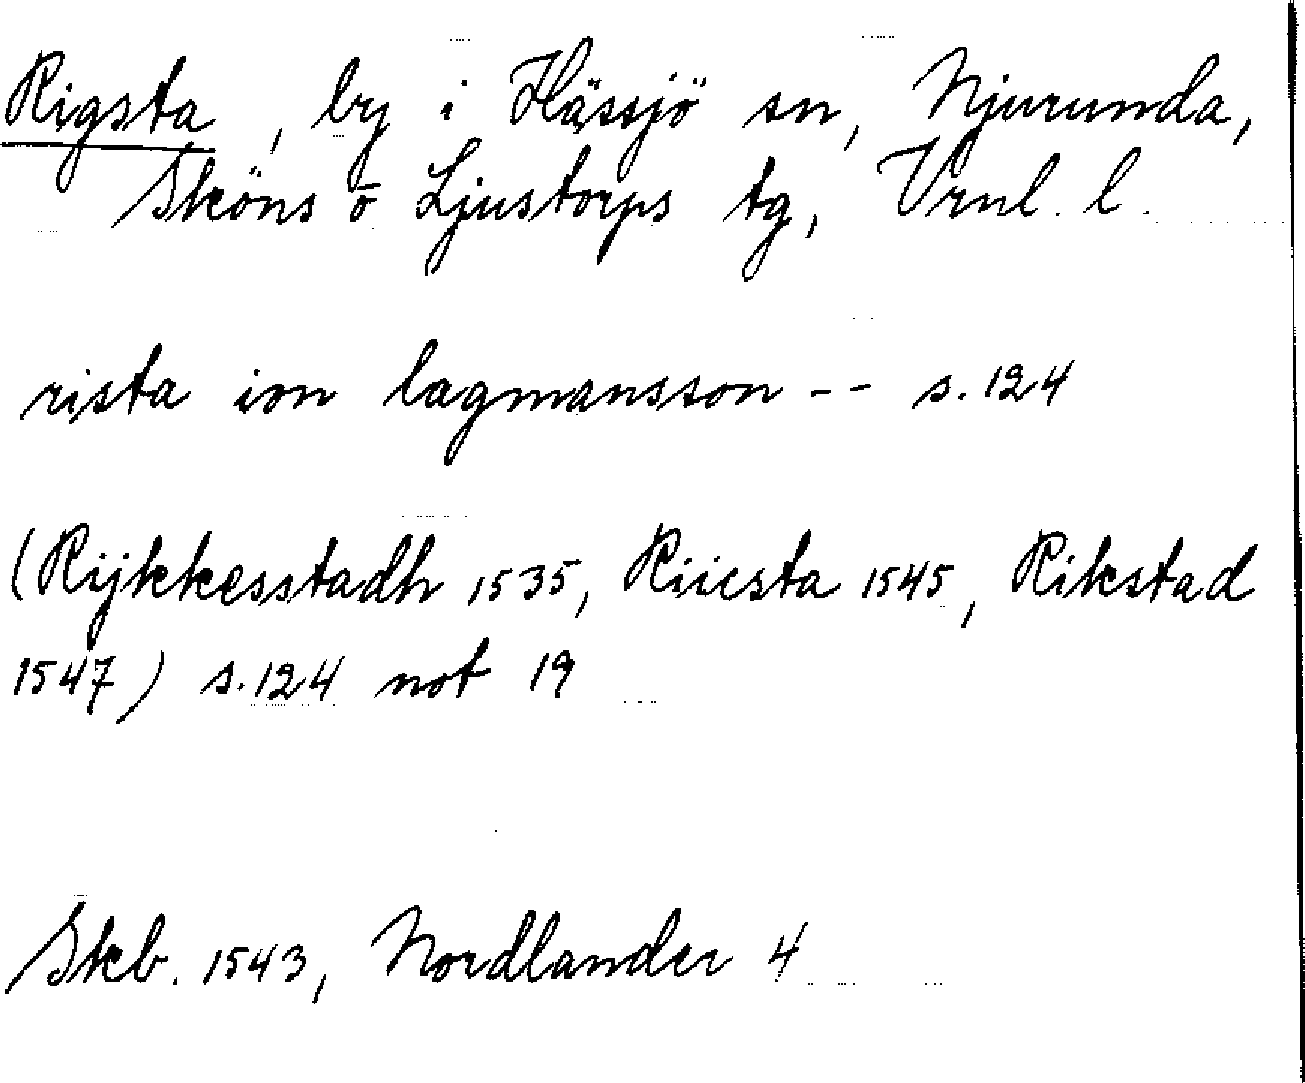 Rigsta, by i Hässjö sn, Njurunda,
Sköns o Ljustorps tg, Vrnl. l.
rista ion lagmansson -- s. 124
(Rijkkesstadh 1535, Riicsta 1545, Rikstad
1547) s. 124 not 19
Skb. 1543, Nordlander 4